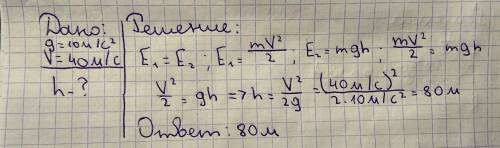 Дано:
g=10м/с²
V=40м/с
h-?
Решение:
E₁=E₂ ; E₁= mV²/2 ; E₂=mgh ; mV²/2 = mgh
V²/2 = gh => h = V²/2g = (40м/с)²/2·10м/с² = 80м
Ответ: 80м